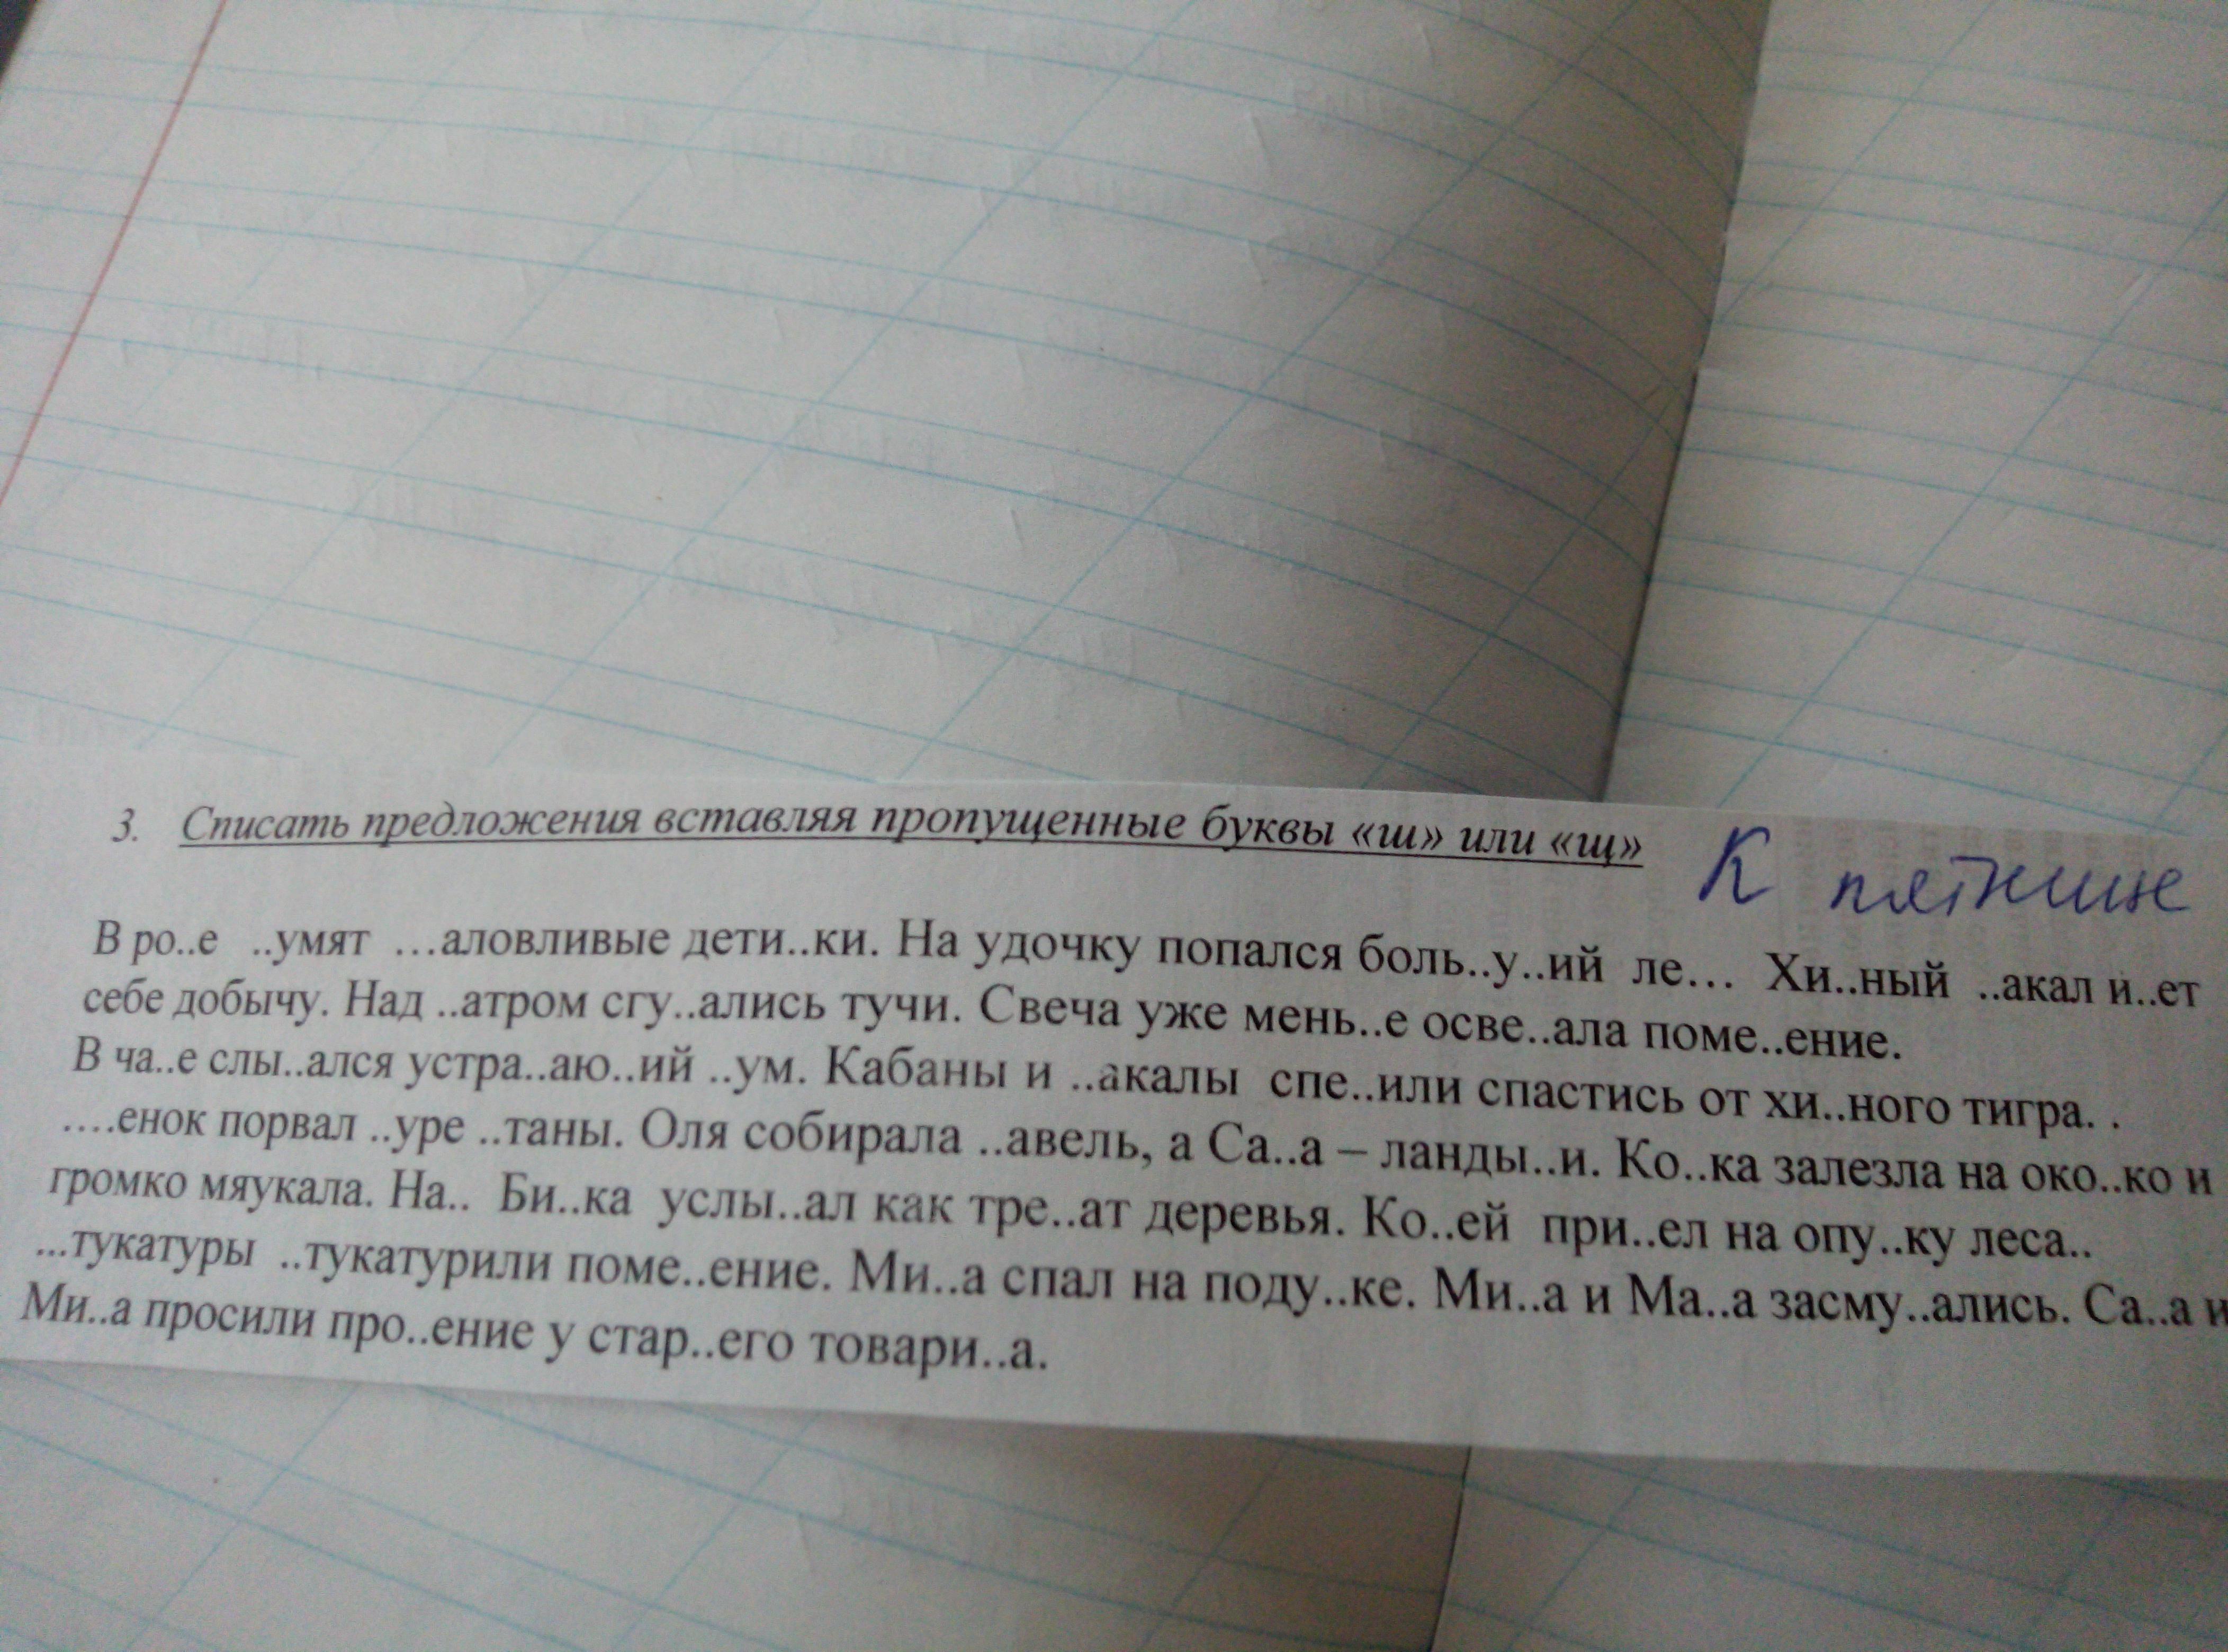 3. Списать предложения вставляя пропущенные буквы «ш» или «щ»
К пятнице
В ро..е ..умят ...аловливые дети..ки. На удочку попался боль..у..ий ле... Хи..ный ..акал и..ет
себе добычу. Над ..атром сгу..ались тучи. Свеча уже мень..е осве..ала поме..ение.
В ча..е слы..ался устра..аю..ий ..ум. Кабаны и ..акалы спе..или спастись от хи..ного тигра. .
....енок порвал ..уре ..таны. Оля собирала ..авель, а Са..а – ланды..и. Ко..ка залезла на око..ко и
громко мяукала. На.. Би..ка услы..ал как тре..ат деревья. Ко..ей при..ел на опу..ку леса..
...тукатуры ..тукатурили поме..ение. Ми..а спал на поду..ке. Ми..а и Ма..а засму..ались. Са..а и
Ми..а просили про..ение у стар..его товари..а.